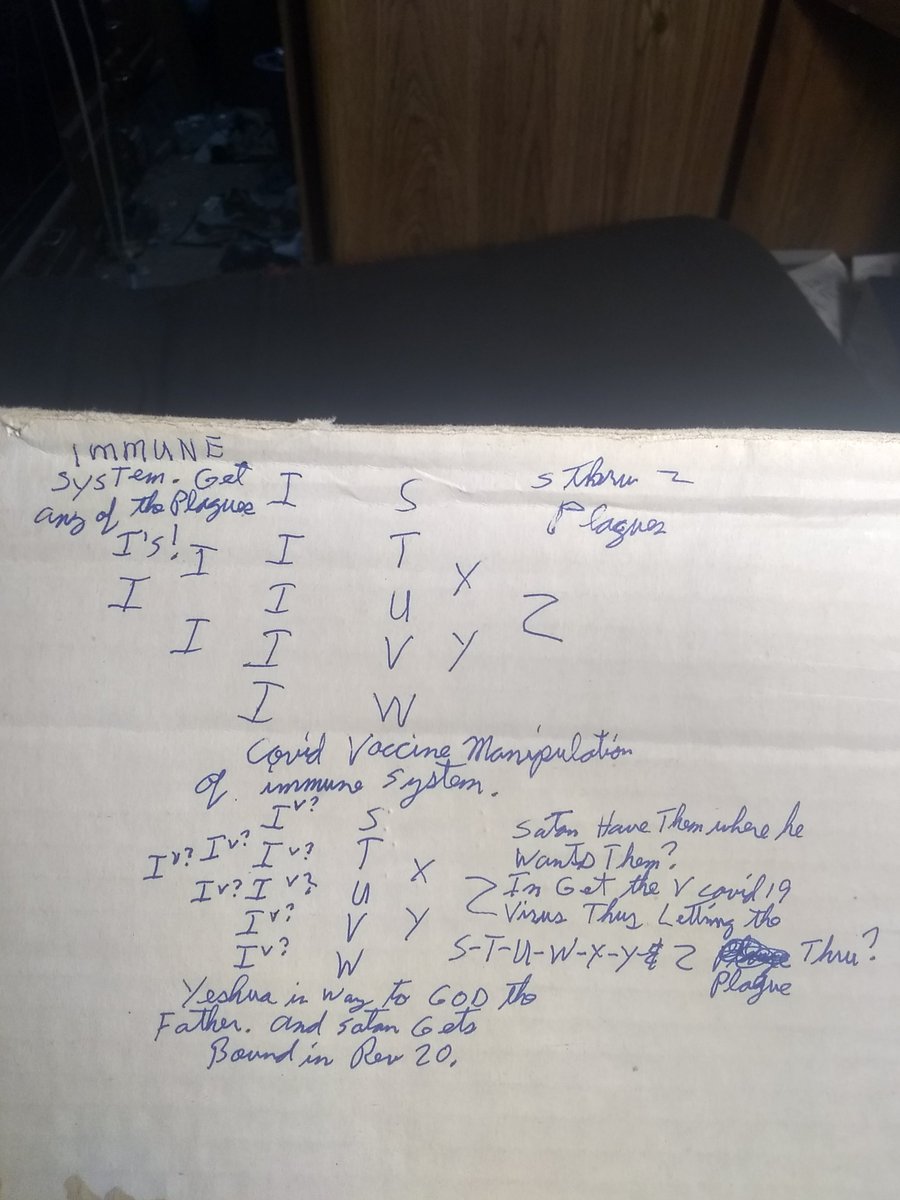 IMMUNE
System. Get
any of the Plagues
I's!
I S
S Thru Z
Plagues
I I T
X
I I U
Z
I I V Y
I W
Covid Vaccine Manipulation
of immune System.
Iv? S
Iv? Iv? Iv? T
X
Iv? Iv? U
Z
Iv? V Y
Iv? W
Satan Have Them where he
Wants Them?
In Get the V covid 19
Virus Thus Letting the
S-T-U-W-X-Y-& Z Thru?
Plague
Yeshua is Way to GOD the
Father. And Satan Gets
Bound in Rev 20.